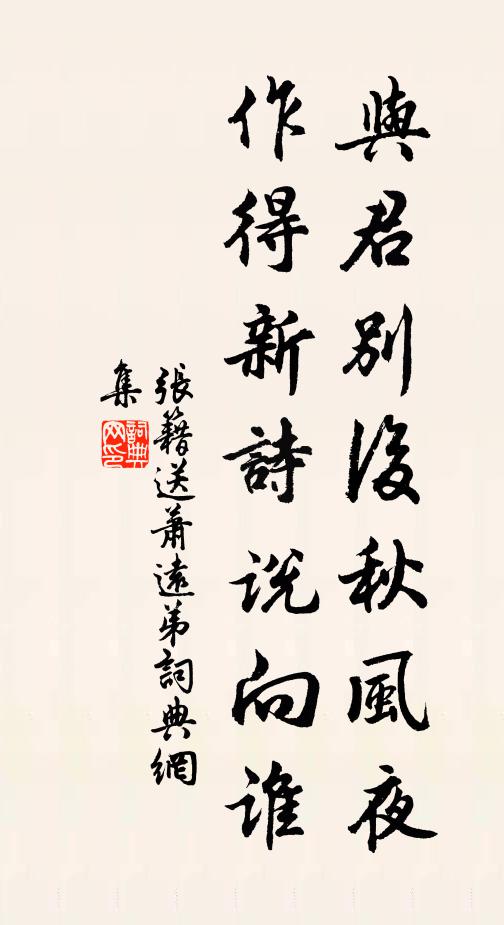 與君別後秋風夜
作得新詩説向誰
張籍送蕭遠弟詞典網
集
詞典
网印